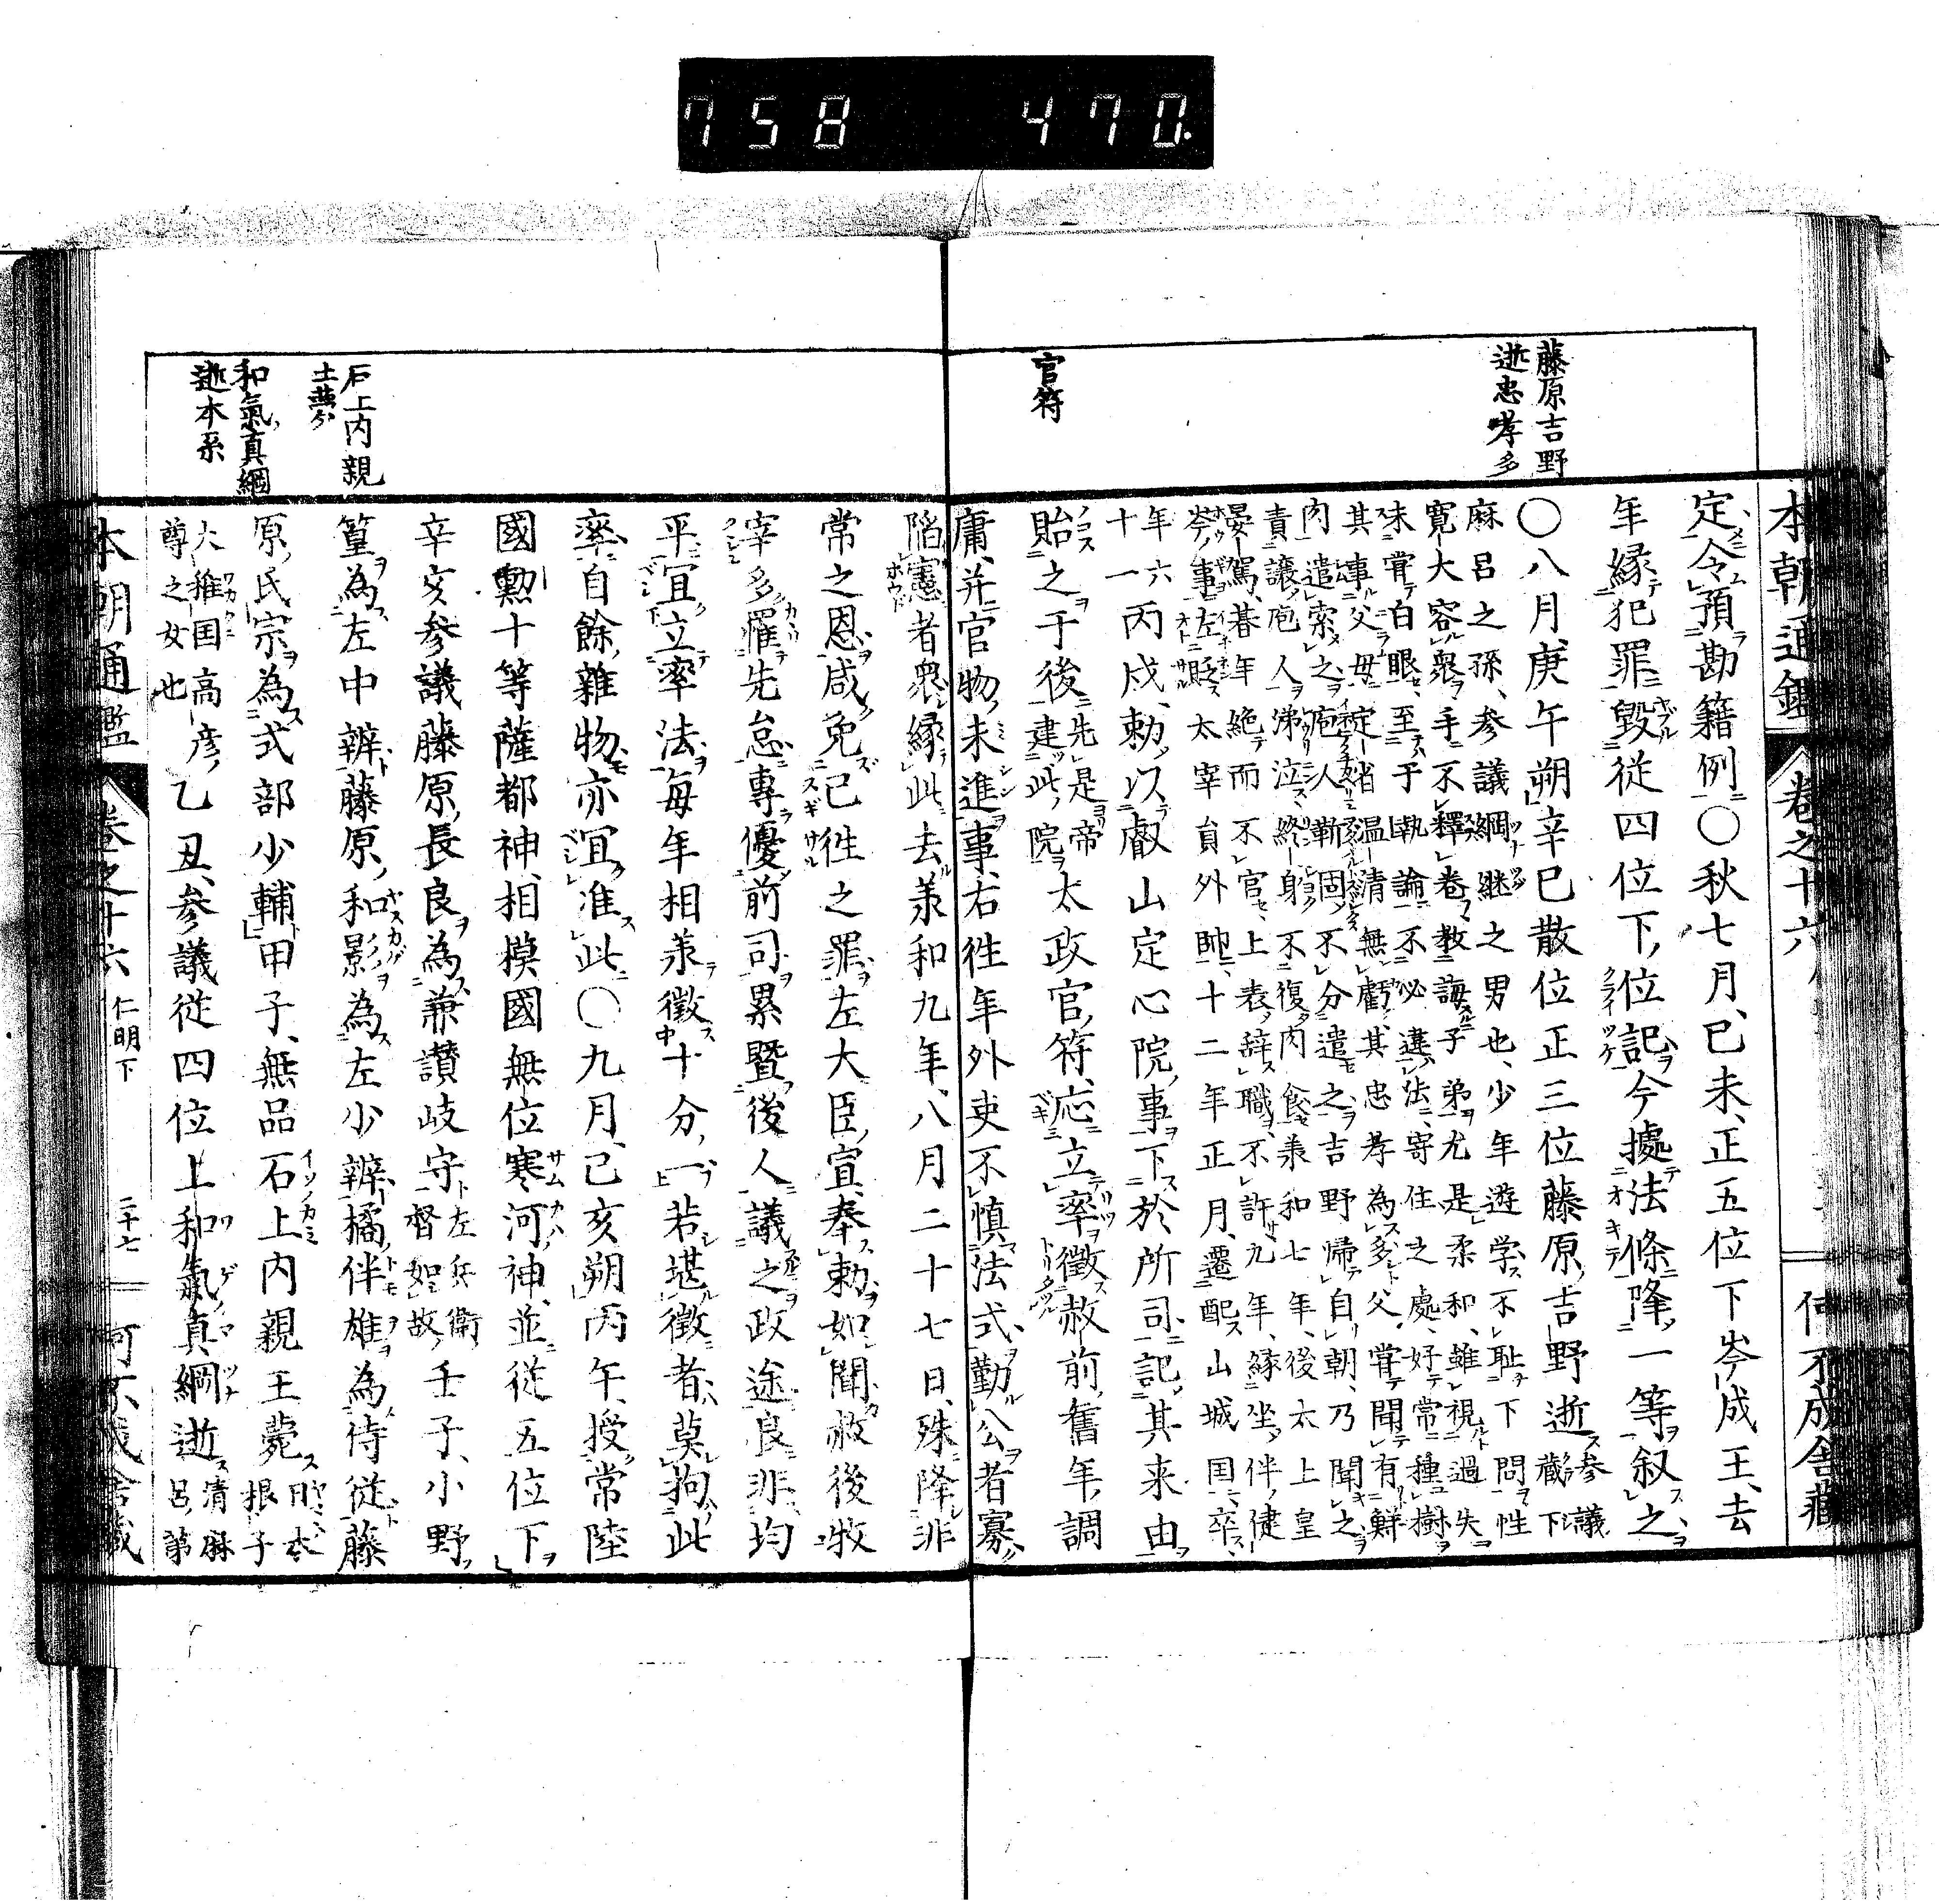 758 470.
藤原吉野
逝忠孝多
官符
本朝通鑑 卷之十六 何不成舍藏
定令預勘籍例○秋七月己未正五位下岑成王去
年縁犯罪毀從四位下位記今據法條降一等叙之
○八月庚午朔辛巳散位正三位藤原吉野逝參議
藏下
麻呂之孫參議綱継之男也少年遊学不恥下問性
寛大容衆手不釋卷教誨子弟尤是柔和雖視過失
未嘗白眼至于執論不必違法寄住之處好常種樹
其事父母定省温清無虧其忠孝為多父嘗聞有鮮
肉遣索之庖人靳固不分遣之吉野帰自朝乃聞之
責譲庖人涕泣終身不復内食羕和七年後太上皇
晏駕暮年絶而不官上表辞職不許九年縁坐伴健
岑事左貶太宰員外帥十二年正月遷配山城国卒
年六
十一丙戍勅以叡山定心院事下於所司記其来由
貽之于後先是帝
建此院太政官符応立率徴赦前舊年調
庸并官物未進事右徃年外吏不慎法式勤公者寡
陥憲者衆縁此去羕和九年八月二十七日殊降非
常之恩咸免已徃之罪左大臣宣奉勅如聞赦後牧
宰多罹先怠專優前司累曁後人議之政途良非均
平宜立率法毎年相羕徴十分一若堪徴者莫拘此
率自餘雜物亦宜准此○九月己亥朔丙午授常陸
國勲十等薩都神相模國無位寒河神並從五位下
辛亥參議藤原長良為兼讃岐守左兵衛
督如故壬子小野
篁為左中辨藤原和影為左少辨橘伴雄為侍從藤
原氏宗為式部少輔甲子無品石上内親王薨
根子
大稚国高彦
尊之女也乙丑參議從四位上和氣真綱逝清麻
呂第
石上内親
王薨
和氣真綱
逝本系
本朝通鑑 卷之十六 仁明下 二十七 何不成舍藏